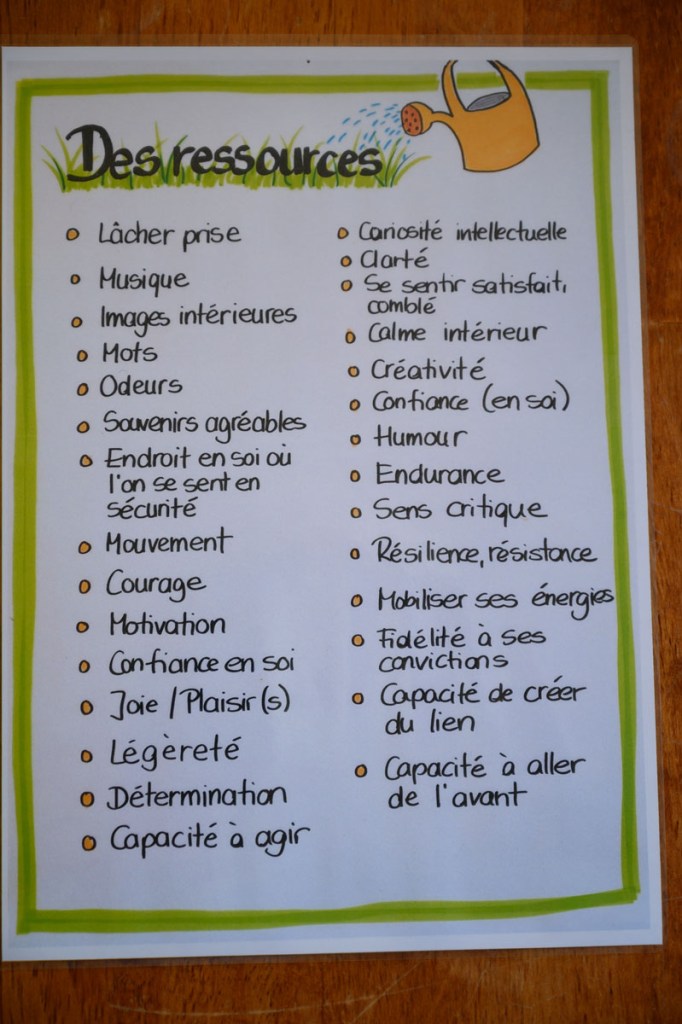 Des ressources
Lâcher prise
Musique
Images intérieures
Mots
Odeurs
Souvenirs agréables
Endroit en soi où
l'on se sent en
sécurité
Mouvement
Courage
Motivation
Confiance en soi
Joie / Plaisir(s)
Légèreté
Détermination
Capacité à agir
Curiosité intellectuelle
Clarté
Se sentir satisfait,
comblé
Calme intérieur
Créativité
Confiance (en soi)
Humour
Endurance
Sens critique
Résilience, résistance
Mobiliser ses énergies
Fidélité à ses
convictions
Capacité de créer
du lien
Capacité à aller
de l'avant